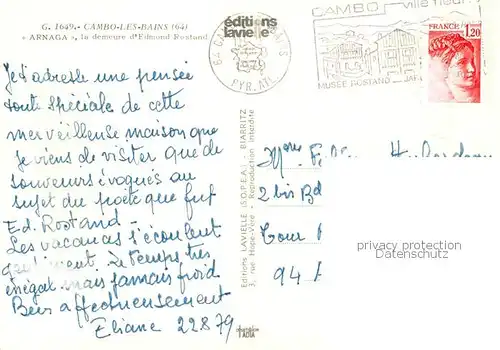 G. 1649.- CAMBO-LES-BAINS (64)
« ARNAGA », la demeure d'Edmond Rostand
éditions
lavielle
64 CAMBO-LES-BAINS
1979
PYR. ATL.
CAMBO ville fleurie
MUSÉE ROSTAND
FRANCE
1,20
Je t'adresse une pensée
toute spéciale de cette
merveilleuse maison que
je viens de visiter que de
souvenirs évoqués au
sujet du poète que fut
Ed. Rostand -
Les vacances s'écoulent
gaiement, le temps très
inégal mais jamais froid
Bien affectueusement
Eliane 22 8 79
Editions LAVIELLE (S.O.P.E.A.) - BIARRITZ
3, rue Hope-Vère - Reproduction Interdite
Mme
2 bis Bd
94
privacy protection
Datenschutz